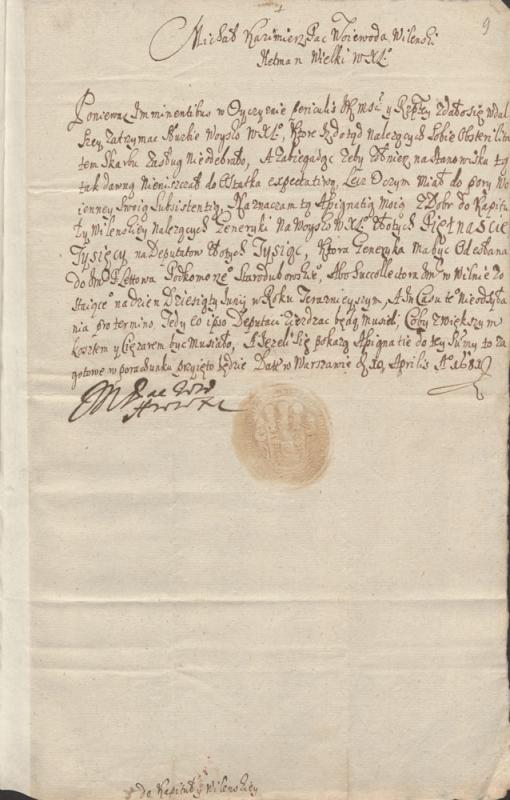 9
Michał Kazimierz Pac Woiewoda Wilenski
Hetman Wielki WXL°
Poniewaz Imminentibus w Oyczyznie periculis JKMści y Rzptey zdało się wdal
szey zatrzymac słuzbie Woysko WXL° Ktore iz dotąd nalezących sobie
tem Skarbu zasług nieodebrało, A zabiegaiąc zeby zołnierz na stanowisku
tak dawną niemieszkał do ostatka expectatiwą, Lecz o czym miał do pory wo
ienney swoię subsistentię, Naznaczam tę Assignatią moią z Dobr do Kapitu
ły Wilenskiey nalezących Generyki na Woysko WXL° złotych Piętnascie
Tysięcy na Deputatow złotych Tysiąc, Ktora Generyka ma byc odesłana
do Jmci P. Lettowa Podkomorze° Starodubowskie°, Abo Succollectora Jmci w Wilnie zo
staiące° na dzien dziesiąty Junij w Roku Teraznieyszym, A in Casu te° nieodda
nia pro termino, Tedy eo ipso Deputaci ziezdzac będą musieli, Coby z większym
kosztem y cięzarem byc musiało, A iezeli się pokazą Assignatie do tey sumy to za
gotowe w porachunku przyięto będzie Dat w Warszawie d. 10 Aprilis A° 1681
MPac WW
HWWXL
do Kapituły Wilenskiey